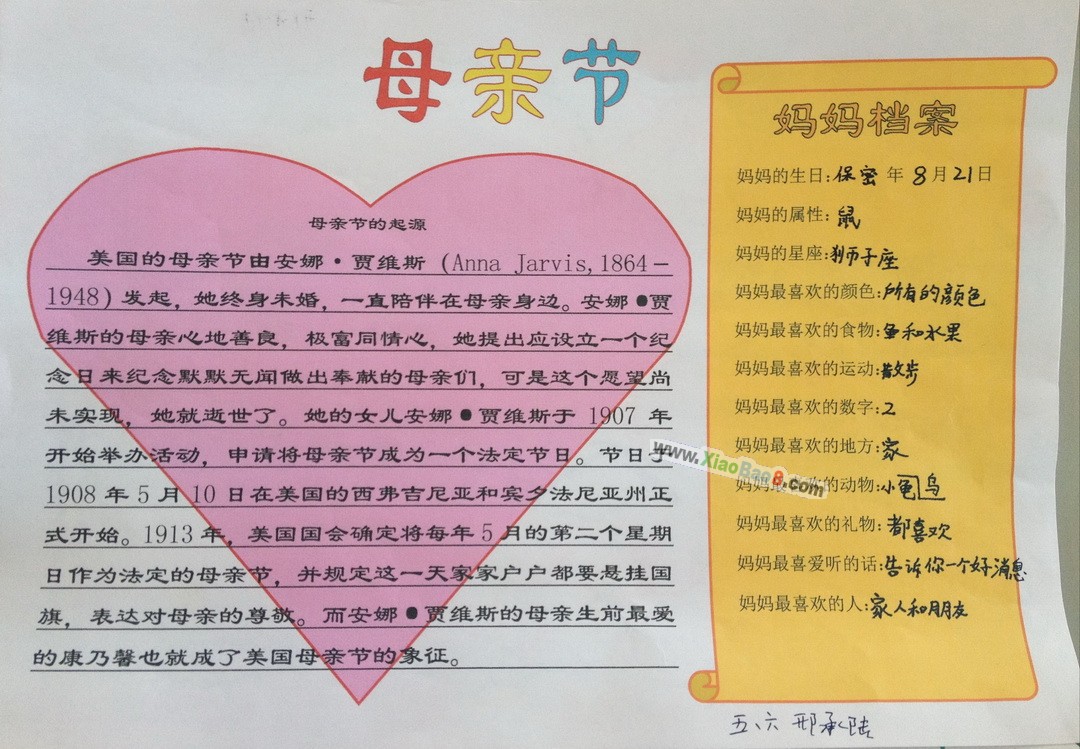 母亲节
母亲节的起源
美国的母亲节由安娜·贾维斯（Anna Jarvis,1864－
1948）发起，她终身未婚，一直陪伴在母亲身边。安娜●贾
维斯的母亲心地善良，极富同情心，她提出应设立一个纪
念日来纪念默默无闻做出奉献的母亲们，可是这个愿望尚
未实现，她就逝世了。她的女儿安娜●贾维斯于 1907 年
开始举办活动，申请将母亲节成为一个法定节日。节日于
1908 年 5 月 10 日在美国的西弗吉尼亚和宾夕法尼亚州正
式开始。1913 年，美国国会确定将每年 5 月的第二个星期
日作为法定的母亲节，并规定这一天家家户户都要悬挂国
旗，表达对母亲的尊敬。而安娜●贾维斯的母亲生前最爱
的康乃馨也就成了美国母亲节的象征。
妈妈档案
妈妈的生日:保密 年 8月21日
妈妈的属性:鼠
妈妈的星座:狮子座
妈妈最喜欢的颜色:所有的颜色
妈妈最喜欢的食物:鱼和水果
妈妈最喜欢的运动:散步
妈妈最喜欢的数字:2
妈妈最喜欢的地方:家
妈妈最喜欢的动物:小龟 乌
妈妈最喜欢的礼物:都喜欢
妈妈最喜爱听的话:告诉你一个好消息
妈妈最喜欢的人:家人和朋友
www.XiaoBao8.com
五、六 邢承陆